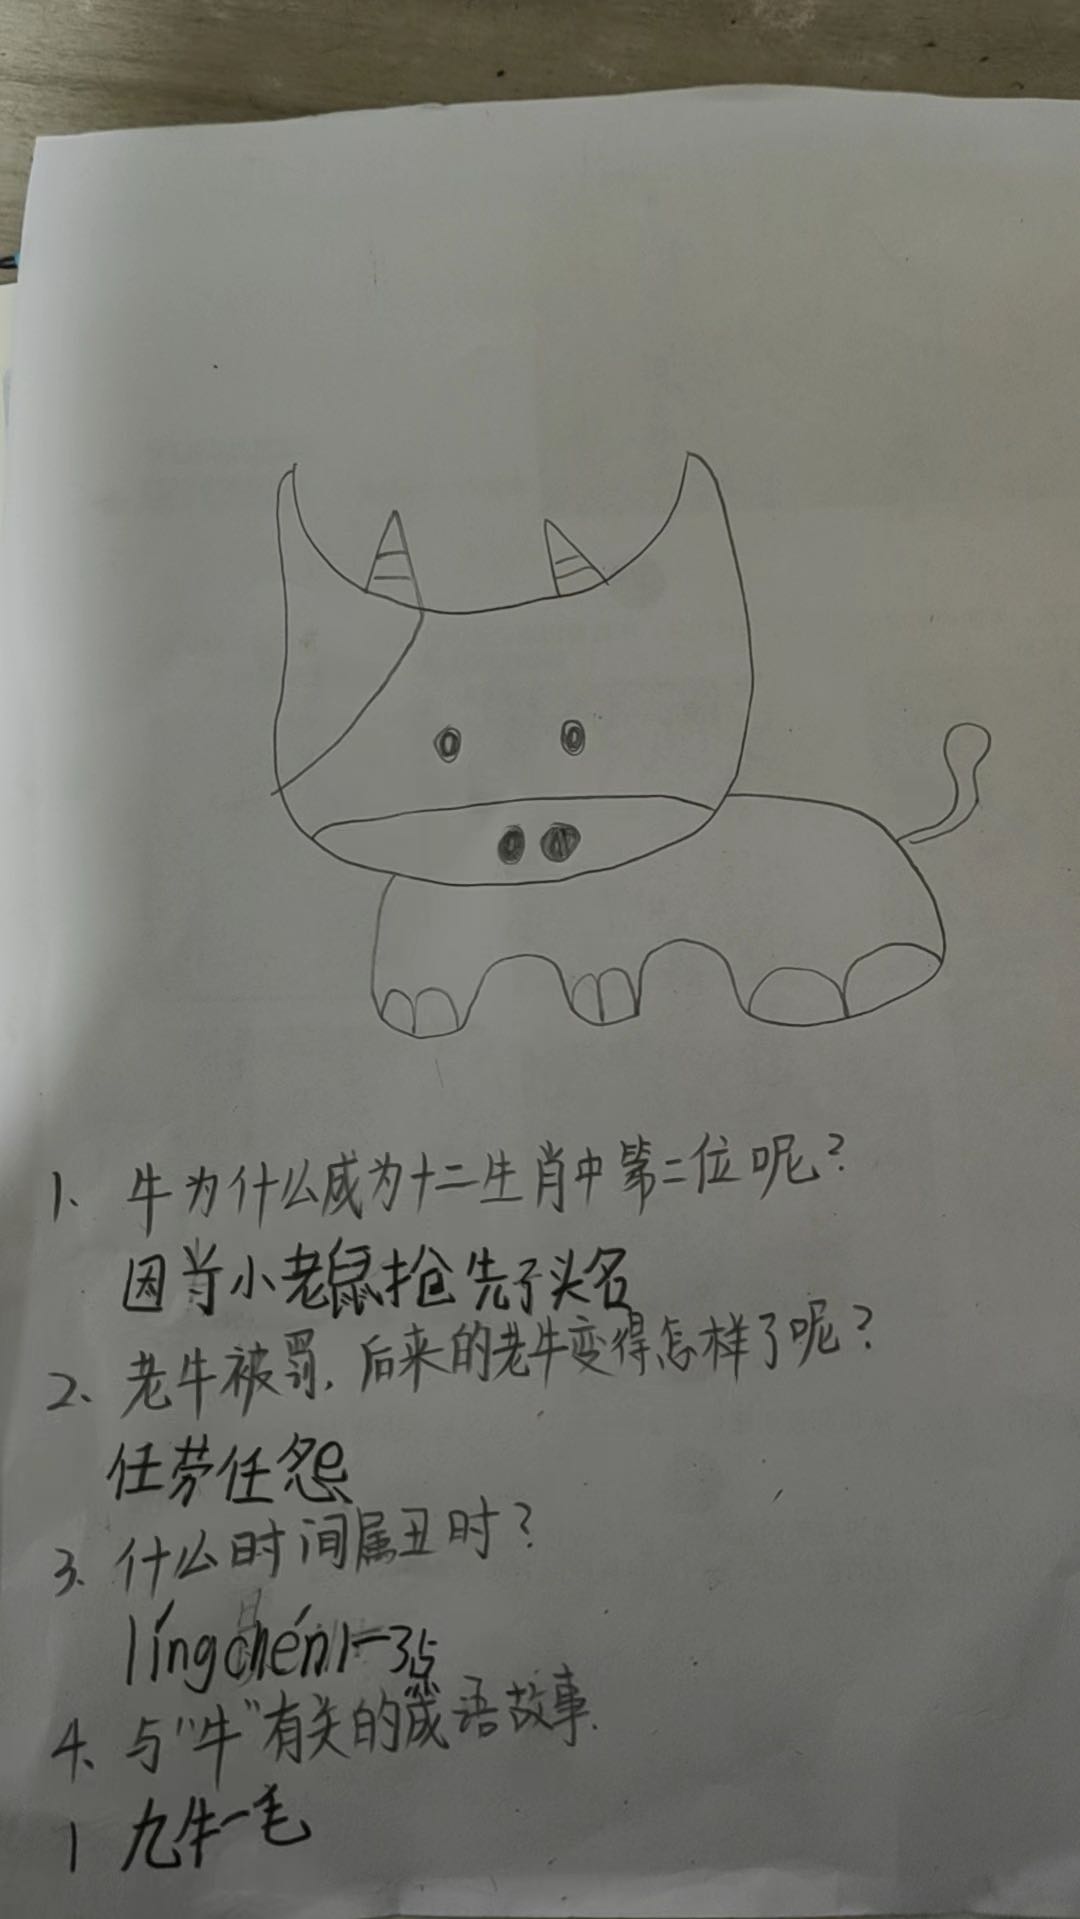 1、牛为什么成为十二生肖中第二位呢？
因当小老鼠抢先了头名
2、老牛被罚，后来的老牛变得怎样了呢？
任劳任怨
3、什么时间属丑时？
língchén1—3点
4、与“牛”有关的成语故事.
1 九牛一毛